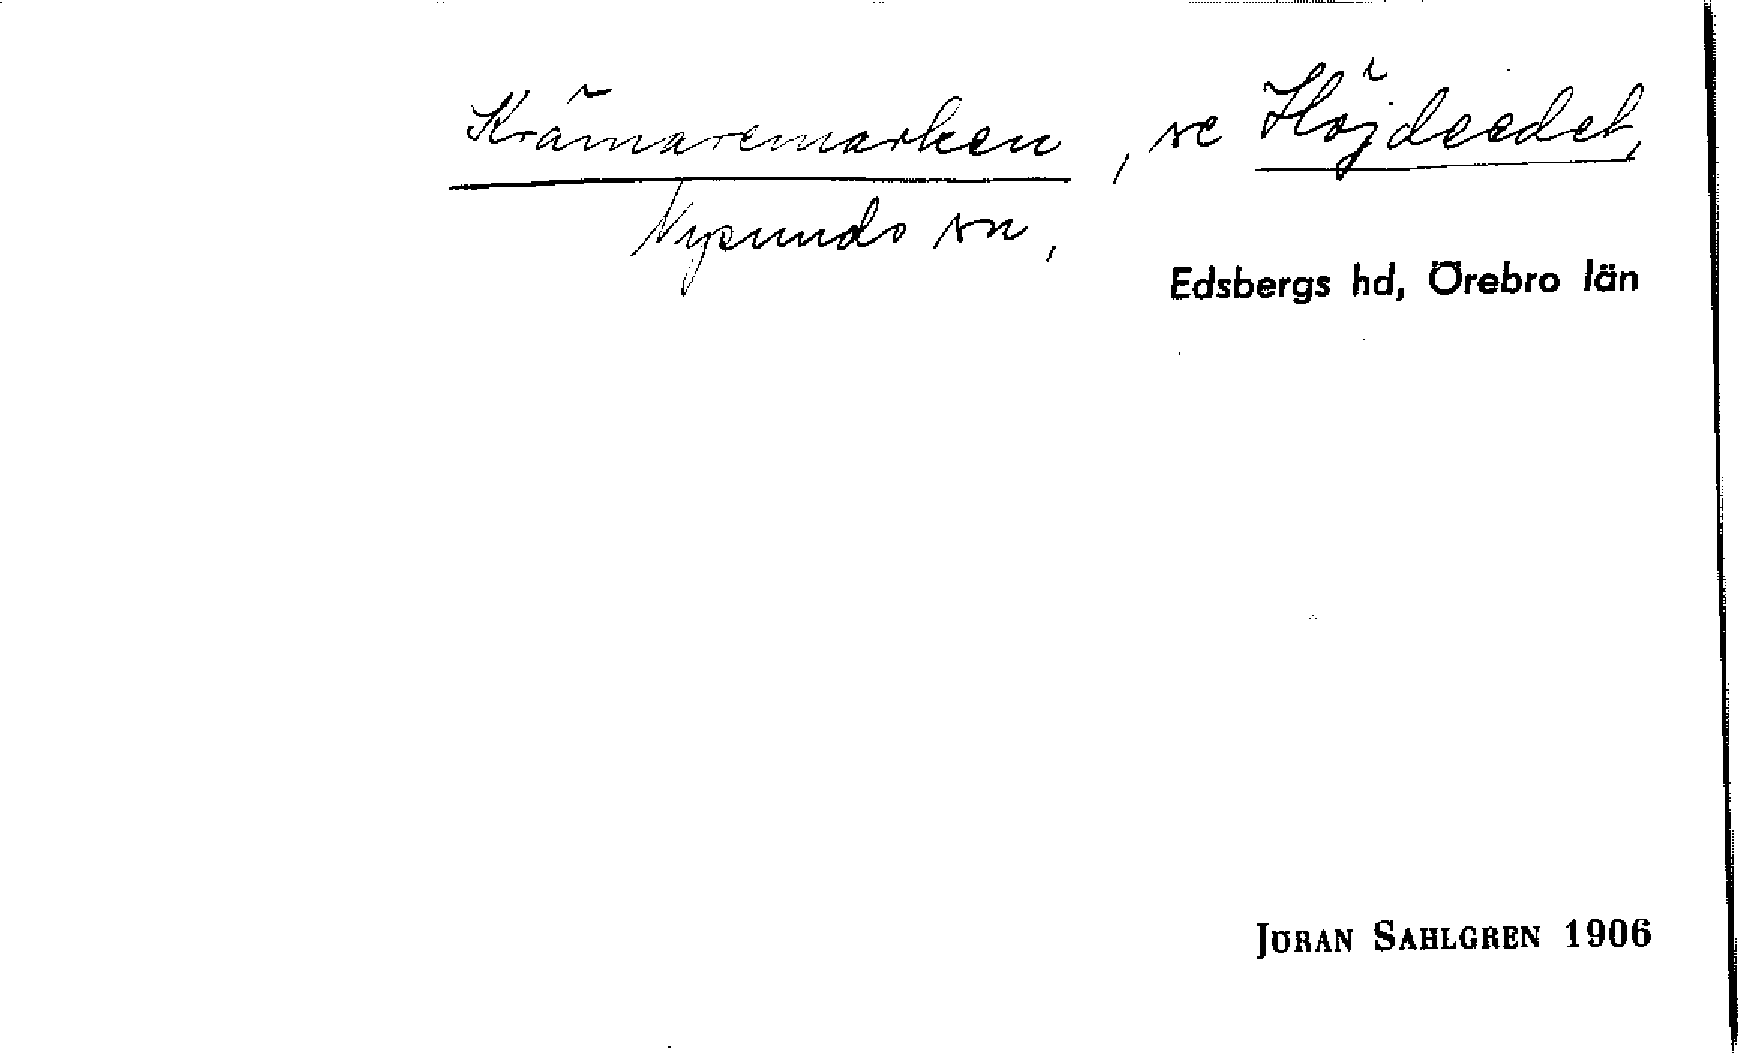 Krämaremarken, se Höjdeedet,
Nysunds sn,
Edsbergs hd, Örebro län
JÖRAN SAHLGREN 1906